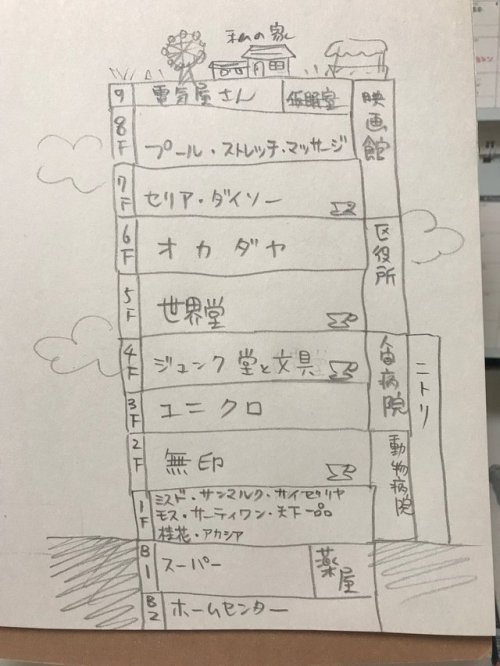 私の家
9 電気屋さん 仮眠室
8F プール・ストレッチ・マッサージ
映画館
7F セリア・ダイソー
6F オカダヤ
区役所
5F 世界堂
4F ジュンク堂と文具
人間病院
ニトリ
3F ユニクロ
2F 無印
動物病院
1F ミスド・サンマルク・サイゼリヤ
モス・サーティワン・天下一品
桂花・アカシア
B1 スーパー 薬屋
B2 ホームセンター